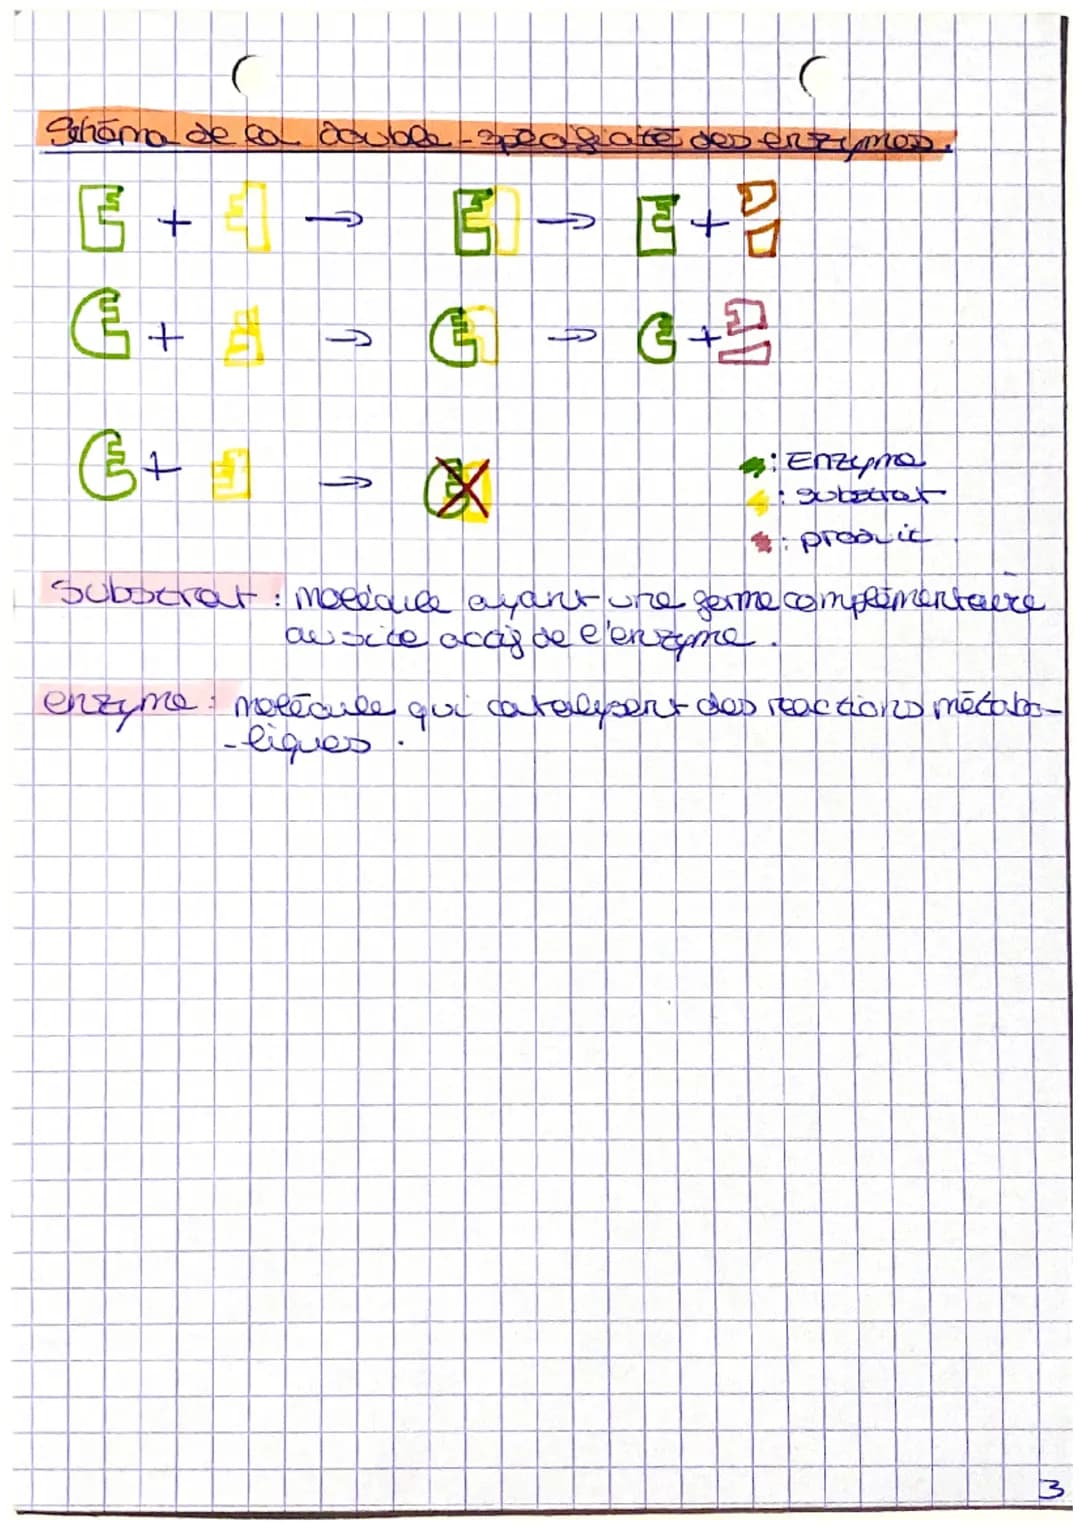 Schéma de la double-spécificité des enzymes.
+ → → +
+ → → +
+ →
: Enzyme
: substrat
: produit
substrat : molécule ayant une forme complémentaire
au site actif de l'enzyme.
enzyme : molécule qui catalysent des reactions métabo-
-liques.
3